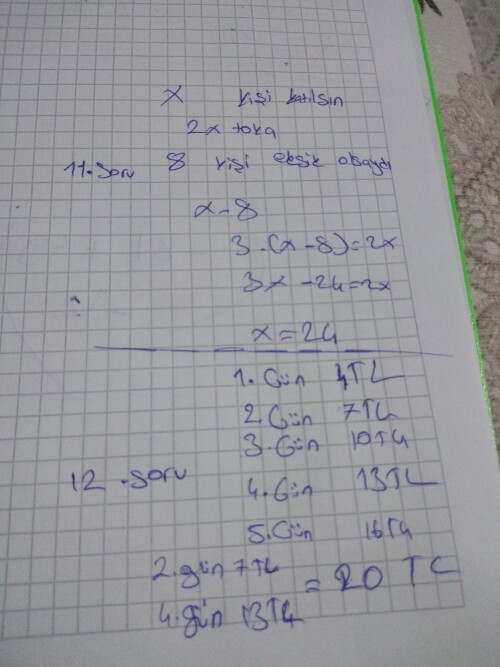 x kişi katılsın
2x toka
11. Soru 8 kişi eksik olsaydı
x - 8
3.(x-8)=2x
3x -24=2x
x=24
1. Gün 4TL
2. Gün 7TL
3. Gün 10TL
12. soru
4. Gün 13TL
5. Gün 16TL
2. gün 7TL
= 20 TL
4. gün 13TL